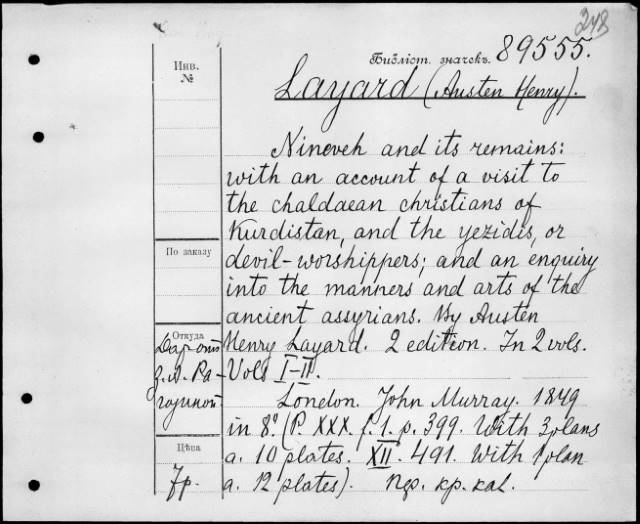 248
Библіот. значекъ. 89555.
Инв.
№
Layard (Austen Henry).
Nineveh and its remains:
with an account of a visit to
the chaldaean christians of
Kurdistan, and the yezidis, or
devil-worshippers; and an enquiry
into the manners and arts of the
ancient assyrians. By Austen
Henry Layard. 2 edition. In 2 vols.
Vols I-II.
London. John Murray. 1849
in 8º. (P. XXX. f. 1. p. 399. With 3 plans
a. 10 plates. XII. 491. With 1 plan
a. 12 plates). пер. кр. кал.
По заказу
Откуда
Даръ отъ
Ра-
гозиной
Цѣна
7р.